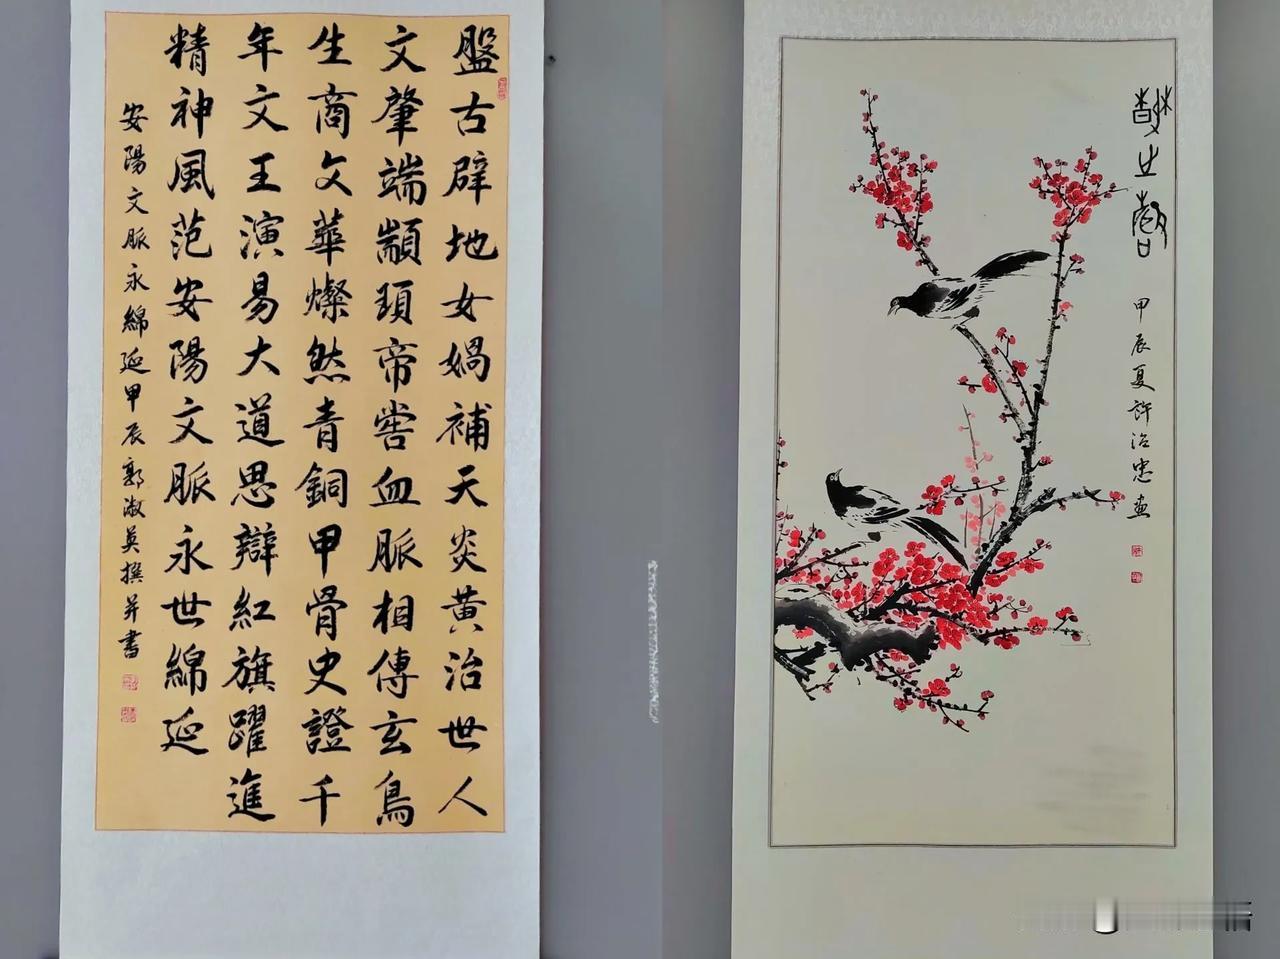 盤古辟地女媧補天炎黄治世人
文肇端顓頊帝喾血脈相傳玄鳥
生商文華燦然青銅甲骨史證千
年文王演易大道思辯紅旗躍進
精神風范安陽文脈永世綿延
安陽文脈永綿延甲辰郭淑英撰并書
甲辰夏許治忠画